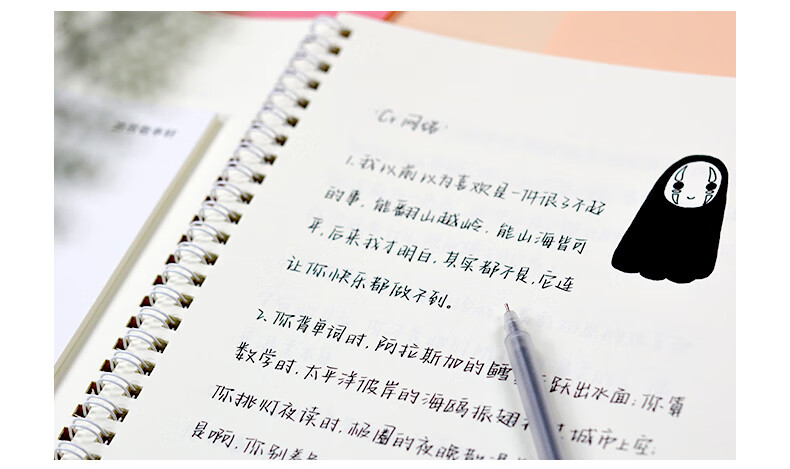 "Cr 网络"
1、我以前以为喜欢是一件很了不起
的事，能翻山越岭，能山海皆可
平，后来我才明白，其实都不是，它连
让你快乐都做不到。
2、你背单词时，阿拉斯加的鳕 跃出水面；你算
数学时，太平洋彼岸的海鸥振翅 城市上空；
你挑灯夜读时，极圈的夜晚散漫
是啊，你别着